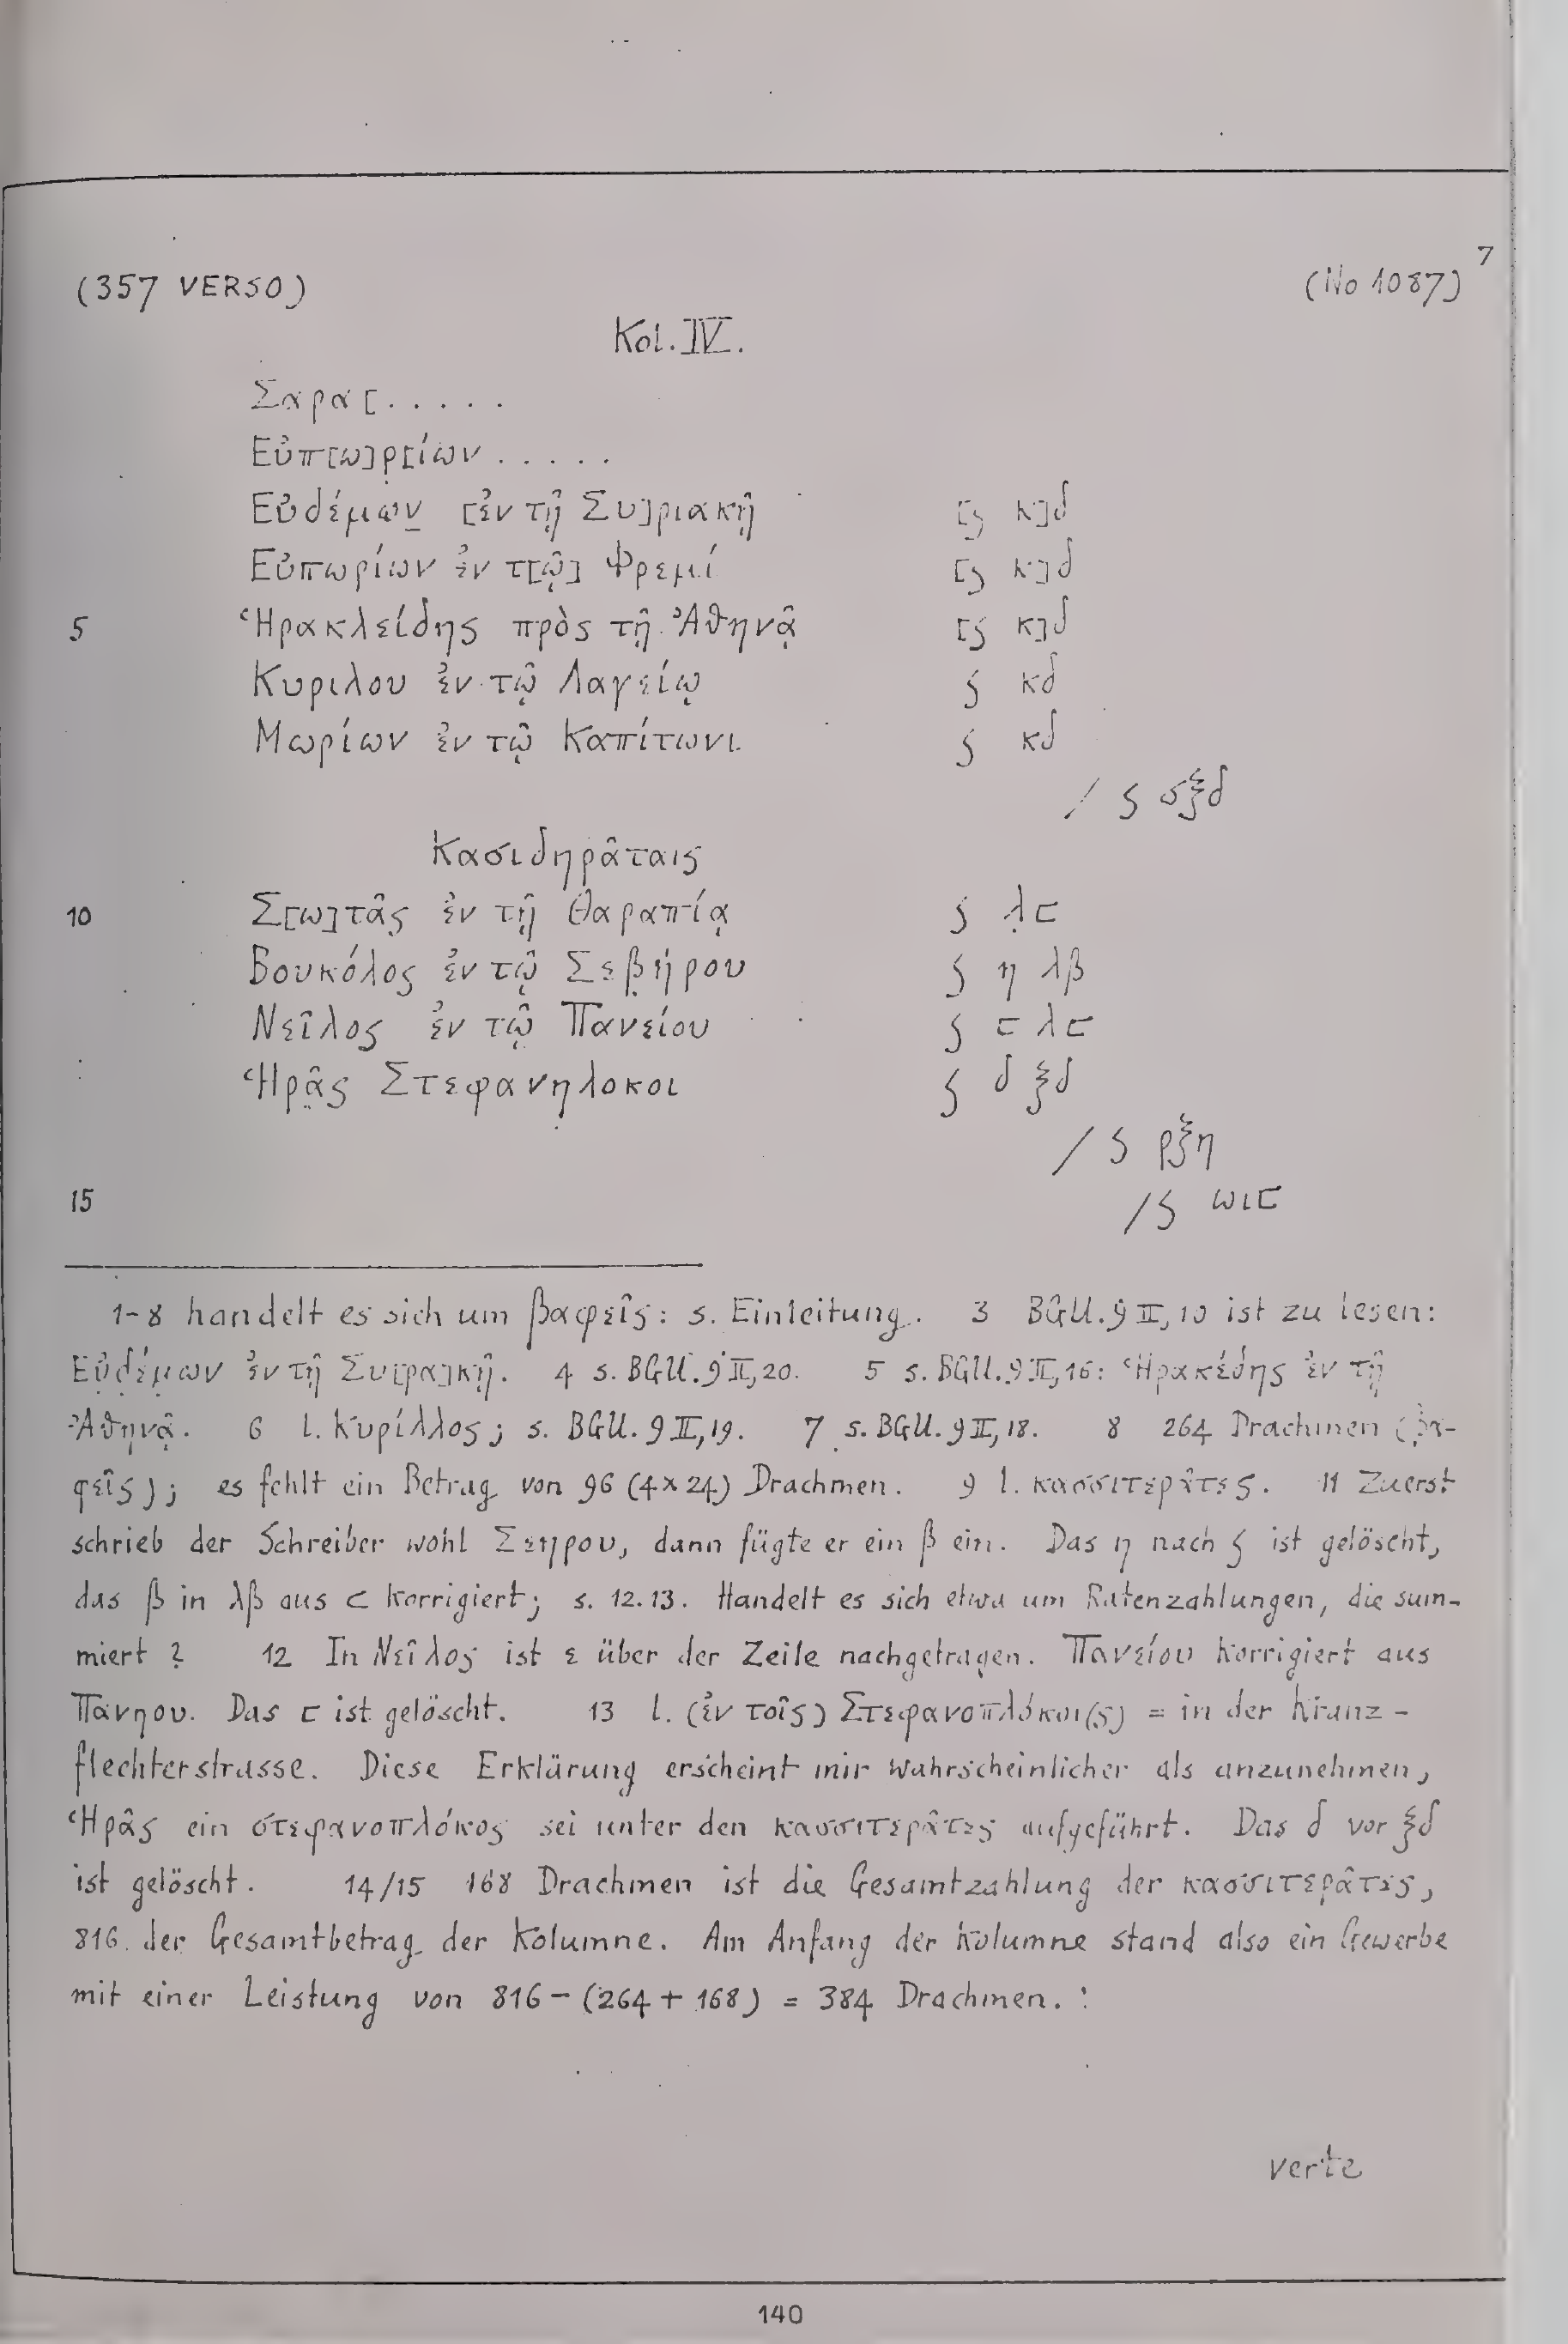 7
(357 VERSO) (No 1087)
Kol. IV.
Σαρα[.....
Εὐπ[ω]ρ[ίων.....
Εὐδέμων [ἐν τῇ Συ]ριακῇ [ϛ κ]δ
Εὐπωρίων ἐν τ[ῷ] Φρεμί [ϛ κ]δ
5 Ἡρακλείδης πρὸς τῇ Ἀθηνᾷ [ϛ κ]δ
Κυριλου ἐν τῷ Λαγείῳ ϛ κδ
Μωρίων ἐν τῷ Καπίτωνι ϛ κδ
/ ϛ σξδ
Κασιδηρᾶταις
10 Σ[ω]τᾶς ἐν τῇ Θαραπίᾳ ϛ λϛ
Βουκόλος ἐν τῷ Σεβήρου ϛ η λβ
Νεῖλος ἐν τῷ Πανείου ϛ ϛ λϛ
Ἡρᾶς Στεφανηλοκοι ϛ δ ξδ
/ ϛ ρξη
15 / ϛ ωιϛ
1-8 handelt es sich um βαφεῖς: s. Einleitung. 3 BGU. 9 II, 10 ist zu lesen:
Εὐδέμων ἐν τῇ Συ[ρα]κῇ. 4 s. BGU. 9 II, 20. 5 s. BGU. 9 II, 16: Ἡρακέδης ἐν τῇ
Ἀθηνᾷ. 6 l. Κυρίλλος; s. BGU. 9 II, 19. 7 s. BGU. 9 II, 18. 8 264 Drachmen (βα-
φεῖς); es fehlt ein Betrag von 96 (4x24) Drachmen. 9 l. κασσιτερᾶτες. 11 Zuerst
schrieb der Schreiber wohl Σεηρου, dann fügte er ein β ein. Das η nach ϛ ist gelöscht,
das β in λβ aus ϛ korrigiert; s. 12. 13. Handelt es sich etwa um Ratenzahlungen, die sum-
miert? 12 In Νεῖλος ist ε über der Zeile nachgetragen. Πανείου korrigiert aus
Πανηου. Das ϛ ist gelöscht. 13 l. (ἐν τοῖς) Στεφανοπλόκοι(ς) = in der Kranz-
flechterstrasse. Diese Erklärung erscheint mir wahrscheinlicher als anzunehmen,
Ἡρᾶς ein στεφανοπλόκος sei unter den κασσιτερᾶτες aufgeführt. Das δ vor ξδ
ist gelöscht. 14/15 168 Drachmen ist die Gesamtzahlung der κασσιτερᾶτες,
816 der Gesamtbetrag der Kolumne. Am Anfang der Kolumne stand also ein Gewerbe
mit einer Leistung von 816 - (264 + 168) = 384 Drachmen.
verte
140